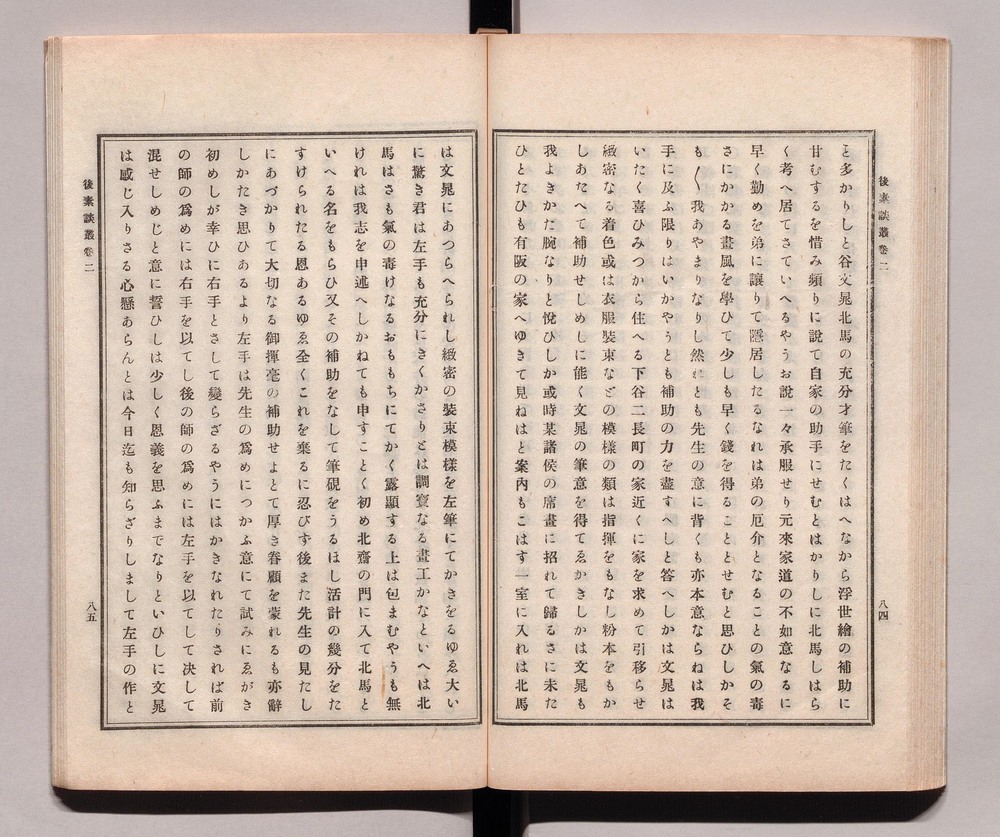 後素談叢卷二
八四
と多かりしと谷文晁北馬の充分才筆をたくはへなから浮世繪の補助に
甘むするを惜み頻りに說て自家の助手にせむとはかりしに北馬しはら
く考へ居てさていへるやうお說一々承服せり元來家道の不如意なるに
早く勤めを弟に讓りて隱居したるなれは弟の厄介となることの氣の毒
さにかかる畫風を學ひて少しも早く錢を得ることとせむと思ひしかそ
も〳〵我あやまりなりし然れとも先生の意に背くも亦本意ならねは我
手に及ふ限りはいかやうとも補助の力を盡すへしと答へしかは文晁は
いたく喜ひみつから住へる下谷二長町の家近くに家を求めて引移らせ
緻密なる着色或は衣服裝束などの模樣の類は指揮をもなし粉本をもか
しあたへて補助せしめしに能く文晁の筆意を得てゑかきしかは文晁も
我よきかた腕なりと悅ひしか或時某諸侯の席畫に招れて歸るさに未た
ひとたひも有阪の家へゆきて見ねはと案內もこはす一室に入れは北馬
は文晁にあつらへられし緻密の裝束模樣を左筆にてかきをるゆゑ大い
に驚き君は左手も充分にきくかさりとは調寶なる畫工かなといへは北
馬はさも氣の毒けなるおももちにてかく露顯する上は包まむやうも無
けれは我志を申述へしかねても申すことく初め北齋の門に入て北馬と
いへる名をもらひ又その補助をなして筆硯をうるほし活計の幾分をた
すけられたる恩あるゆゑ全くこれを棄るに忍びす後また先生の見たし
にあづかりて大切なる御揮毫の補助せよとて厚き眷顧を蒙れるも亦辭
しかたき思ひあるより左手は先生の爲めにつかふ意にて試みにゑがき
初めしが幸ひに右手とさして變らざるやうにはかきなれたりされば前
の師の爲めには右手を以てし後の師の爲めには左手を以てして决して
混せしめじと意に誓ひしは少しく恩義を思ふまでなりといひしに文晁
は感じ入りさる心懸あらんとは今日迄も知らざりしまして左手の作と
後素談叢卷二
八五